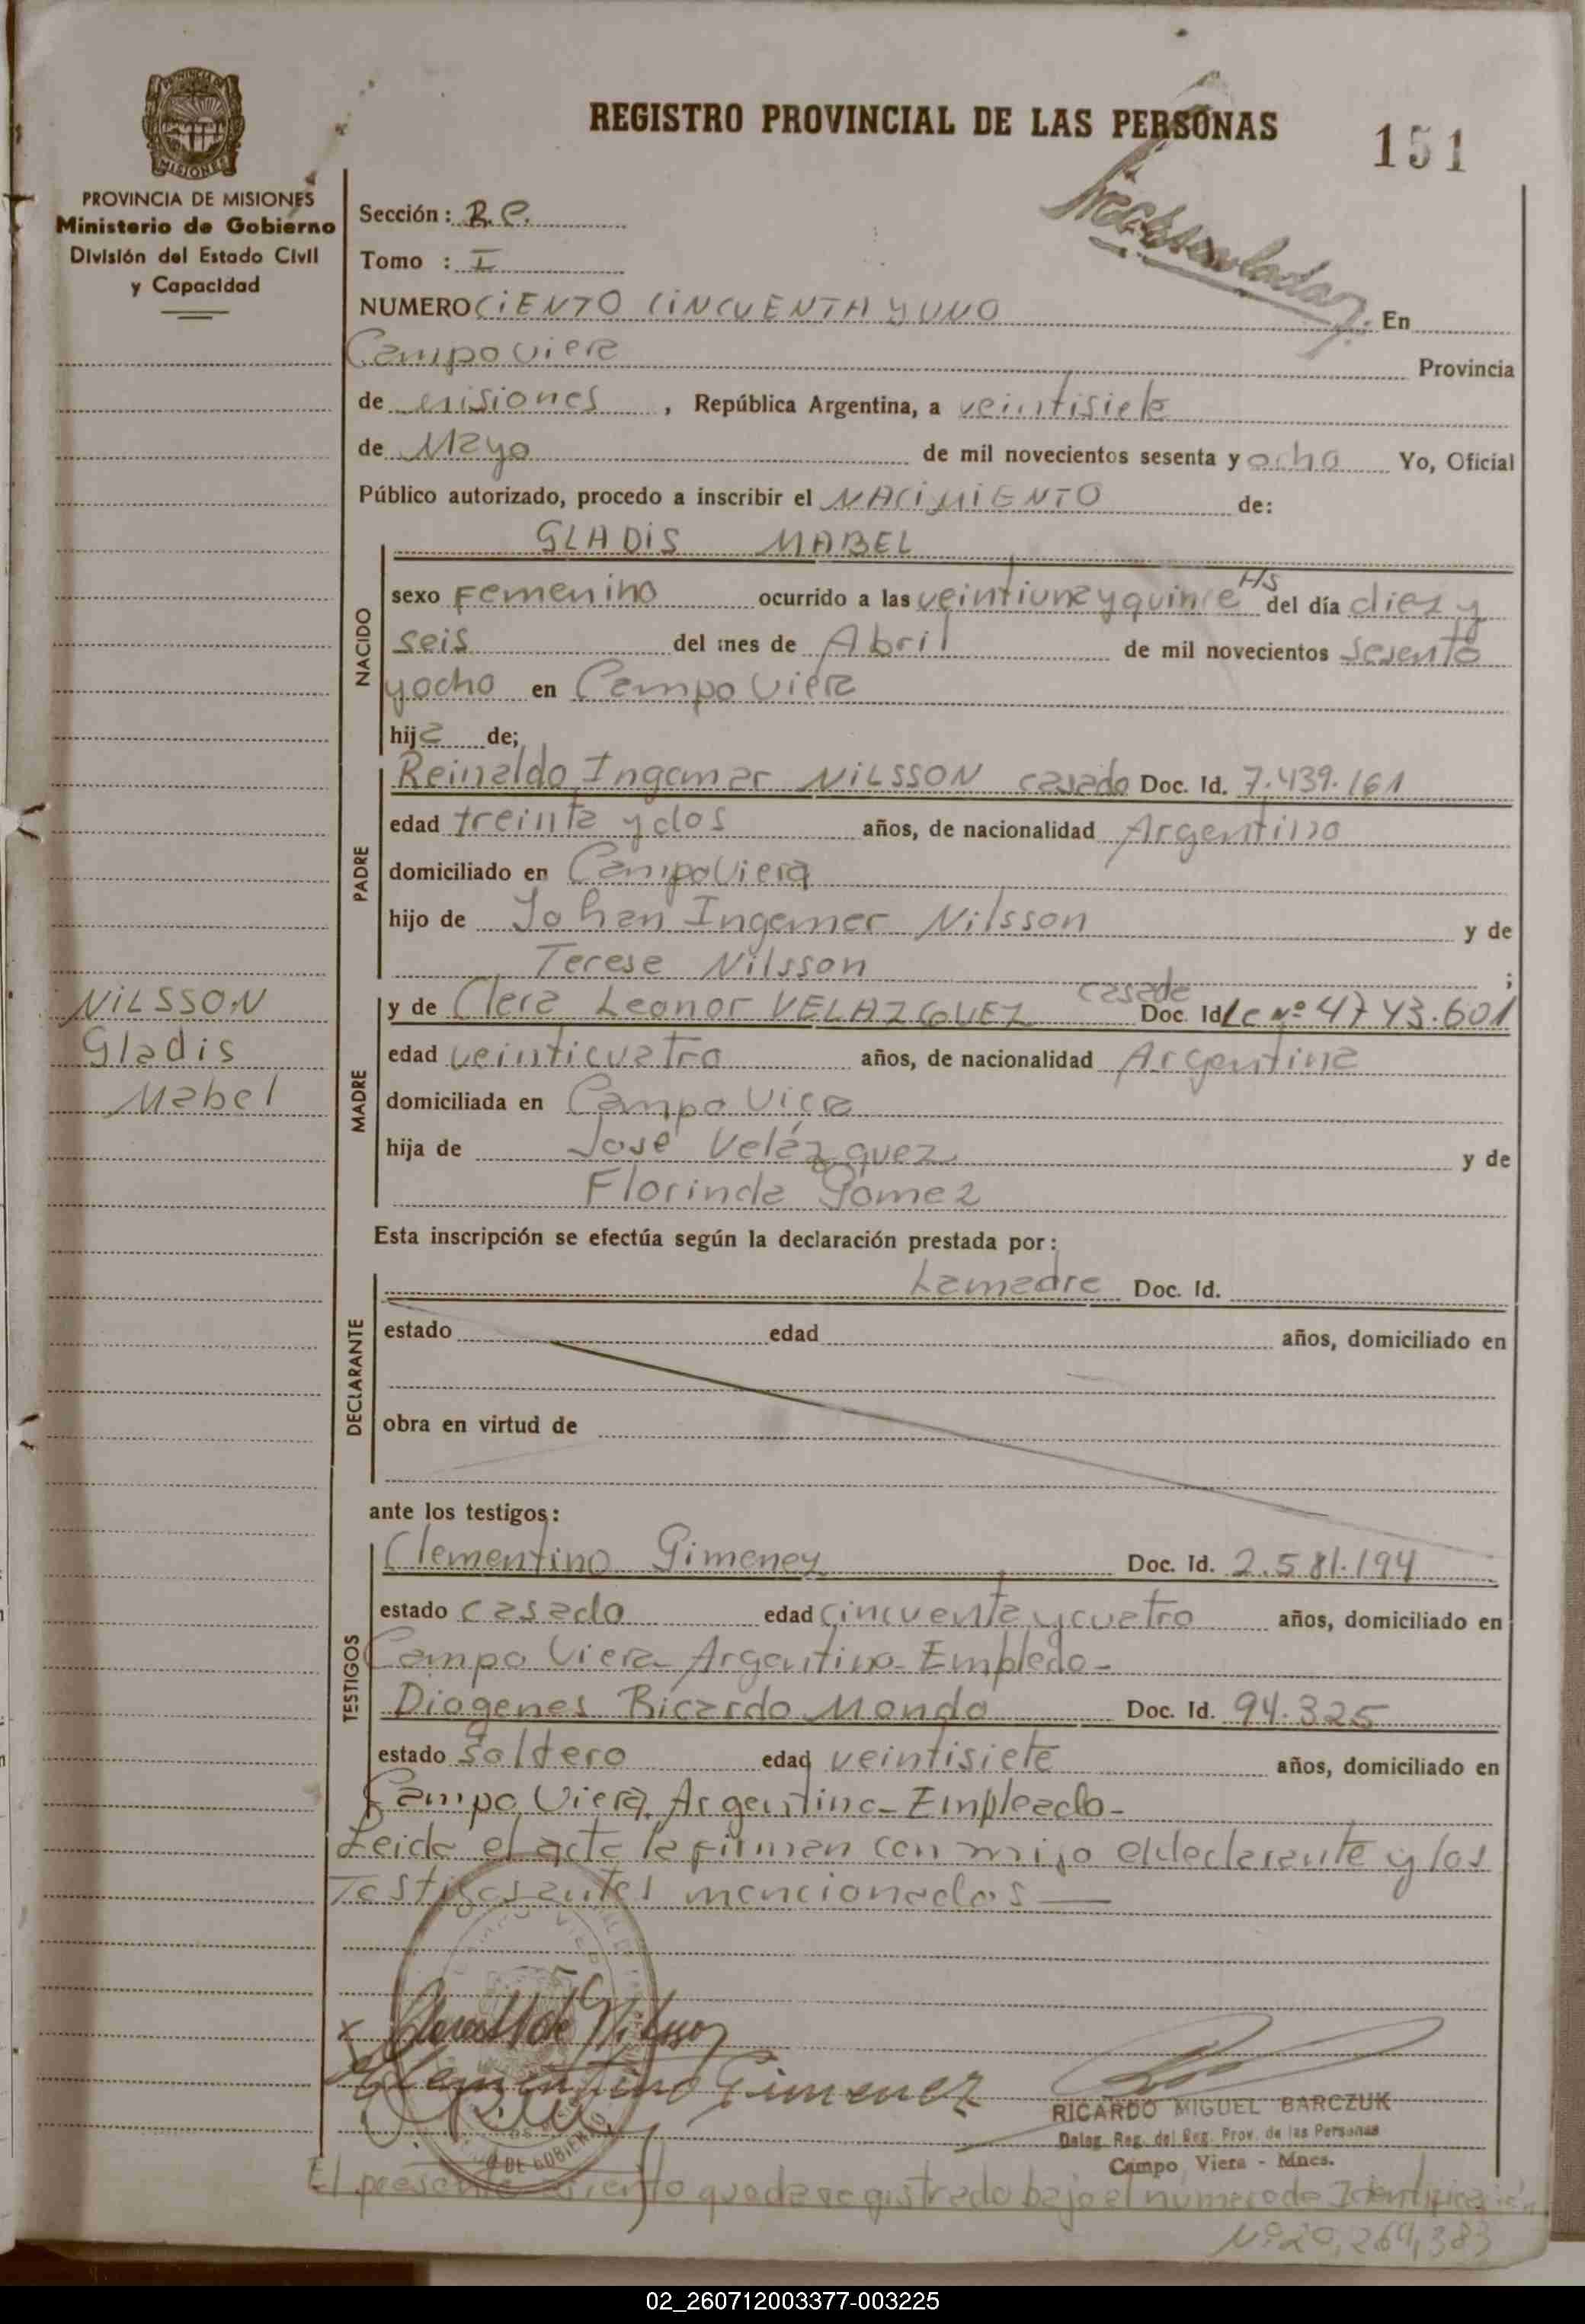 PROVINCIA DE MISIONES
Ministerio de Gobierno
División del Estado Civil
y Capacidad
REGISTRO PROVINCIAL DE LAS PERSONAS
151
Sección: R.C.
Tomo : I
NUMERO CIENTO CINCUENTA Y UNO En
Campo Viera Provincia
de Misiones, República Argentina, a veintisiete
de Mayo de mil novecientos sesenta y ocho Yo, Oficial
Público autorizado, procedo a inscribir el NACIMIENTO de:
GLADIS MABEL
NACIDO
sexo Femenino ocurrido a las veintiuna y quince Hs del día diez y
seis del mes de Abril de mil novecientos sesenta
y ocho en Campo Viera
hija de;
PADRE
Reinaldo Ingamar NILSSON casado Doc. Id. 7.439.161
edad treinta y dos años, de nacionalidad Argentino
domiciliado en Campo Viera
hijo de Johan Ingamar Nilsson y de
Terese Nilsson ;
NILSSON
Gladis
Mabel
MADRE
y de Clara Leonor VELAZQUEZ casada Doc. Id Lc Nº 4743.601
edad veinticuatro años, de nacionalidad Argentina
domiciliada en Campo Viera
hija de José Velázquez y de
Florinda Gomez
Esta inscripción se efectúa según la declaración prestada por:
DECLARANTE
La madre Doc. Id.
estado edad años, domiciliado en
obra en virtud de
ante los testigos:
TESTIGOS
Clementino Gimenez Doc. Id. 2.581.194
estado casado edad cincuenta y cuatro años, domiciliado en
Campo Viera Argentino - Empledo -
Diogenes Ricardo Mondo Doc. Id. 94.325
estado Soltero edad veintisiete años, domiciliado en
Campo Viera, Argentino - Empleado -
Leida el acta la firman con migo el declarante y los
Testigos antes mencionados
de Nilsson
Clementino Gimenez
RICARDO MIGUEL BARCZUK
Deleg. Reg. del Reg. Prov. de las Personas
Campo Viera - Mnes.
El presente asiento queda registrado bajo el número de Identificación
Nº 20,264,383
02_260712003377-003225